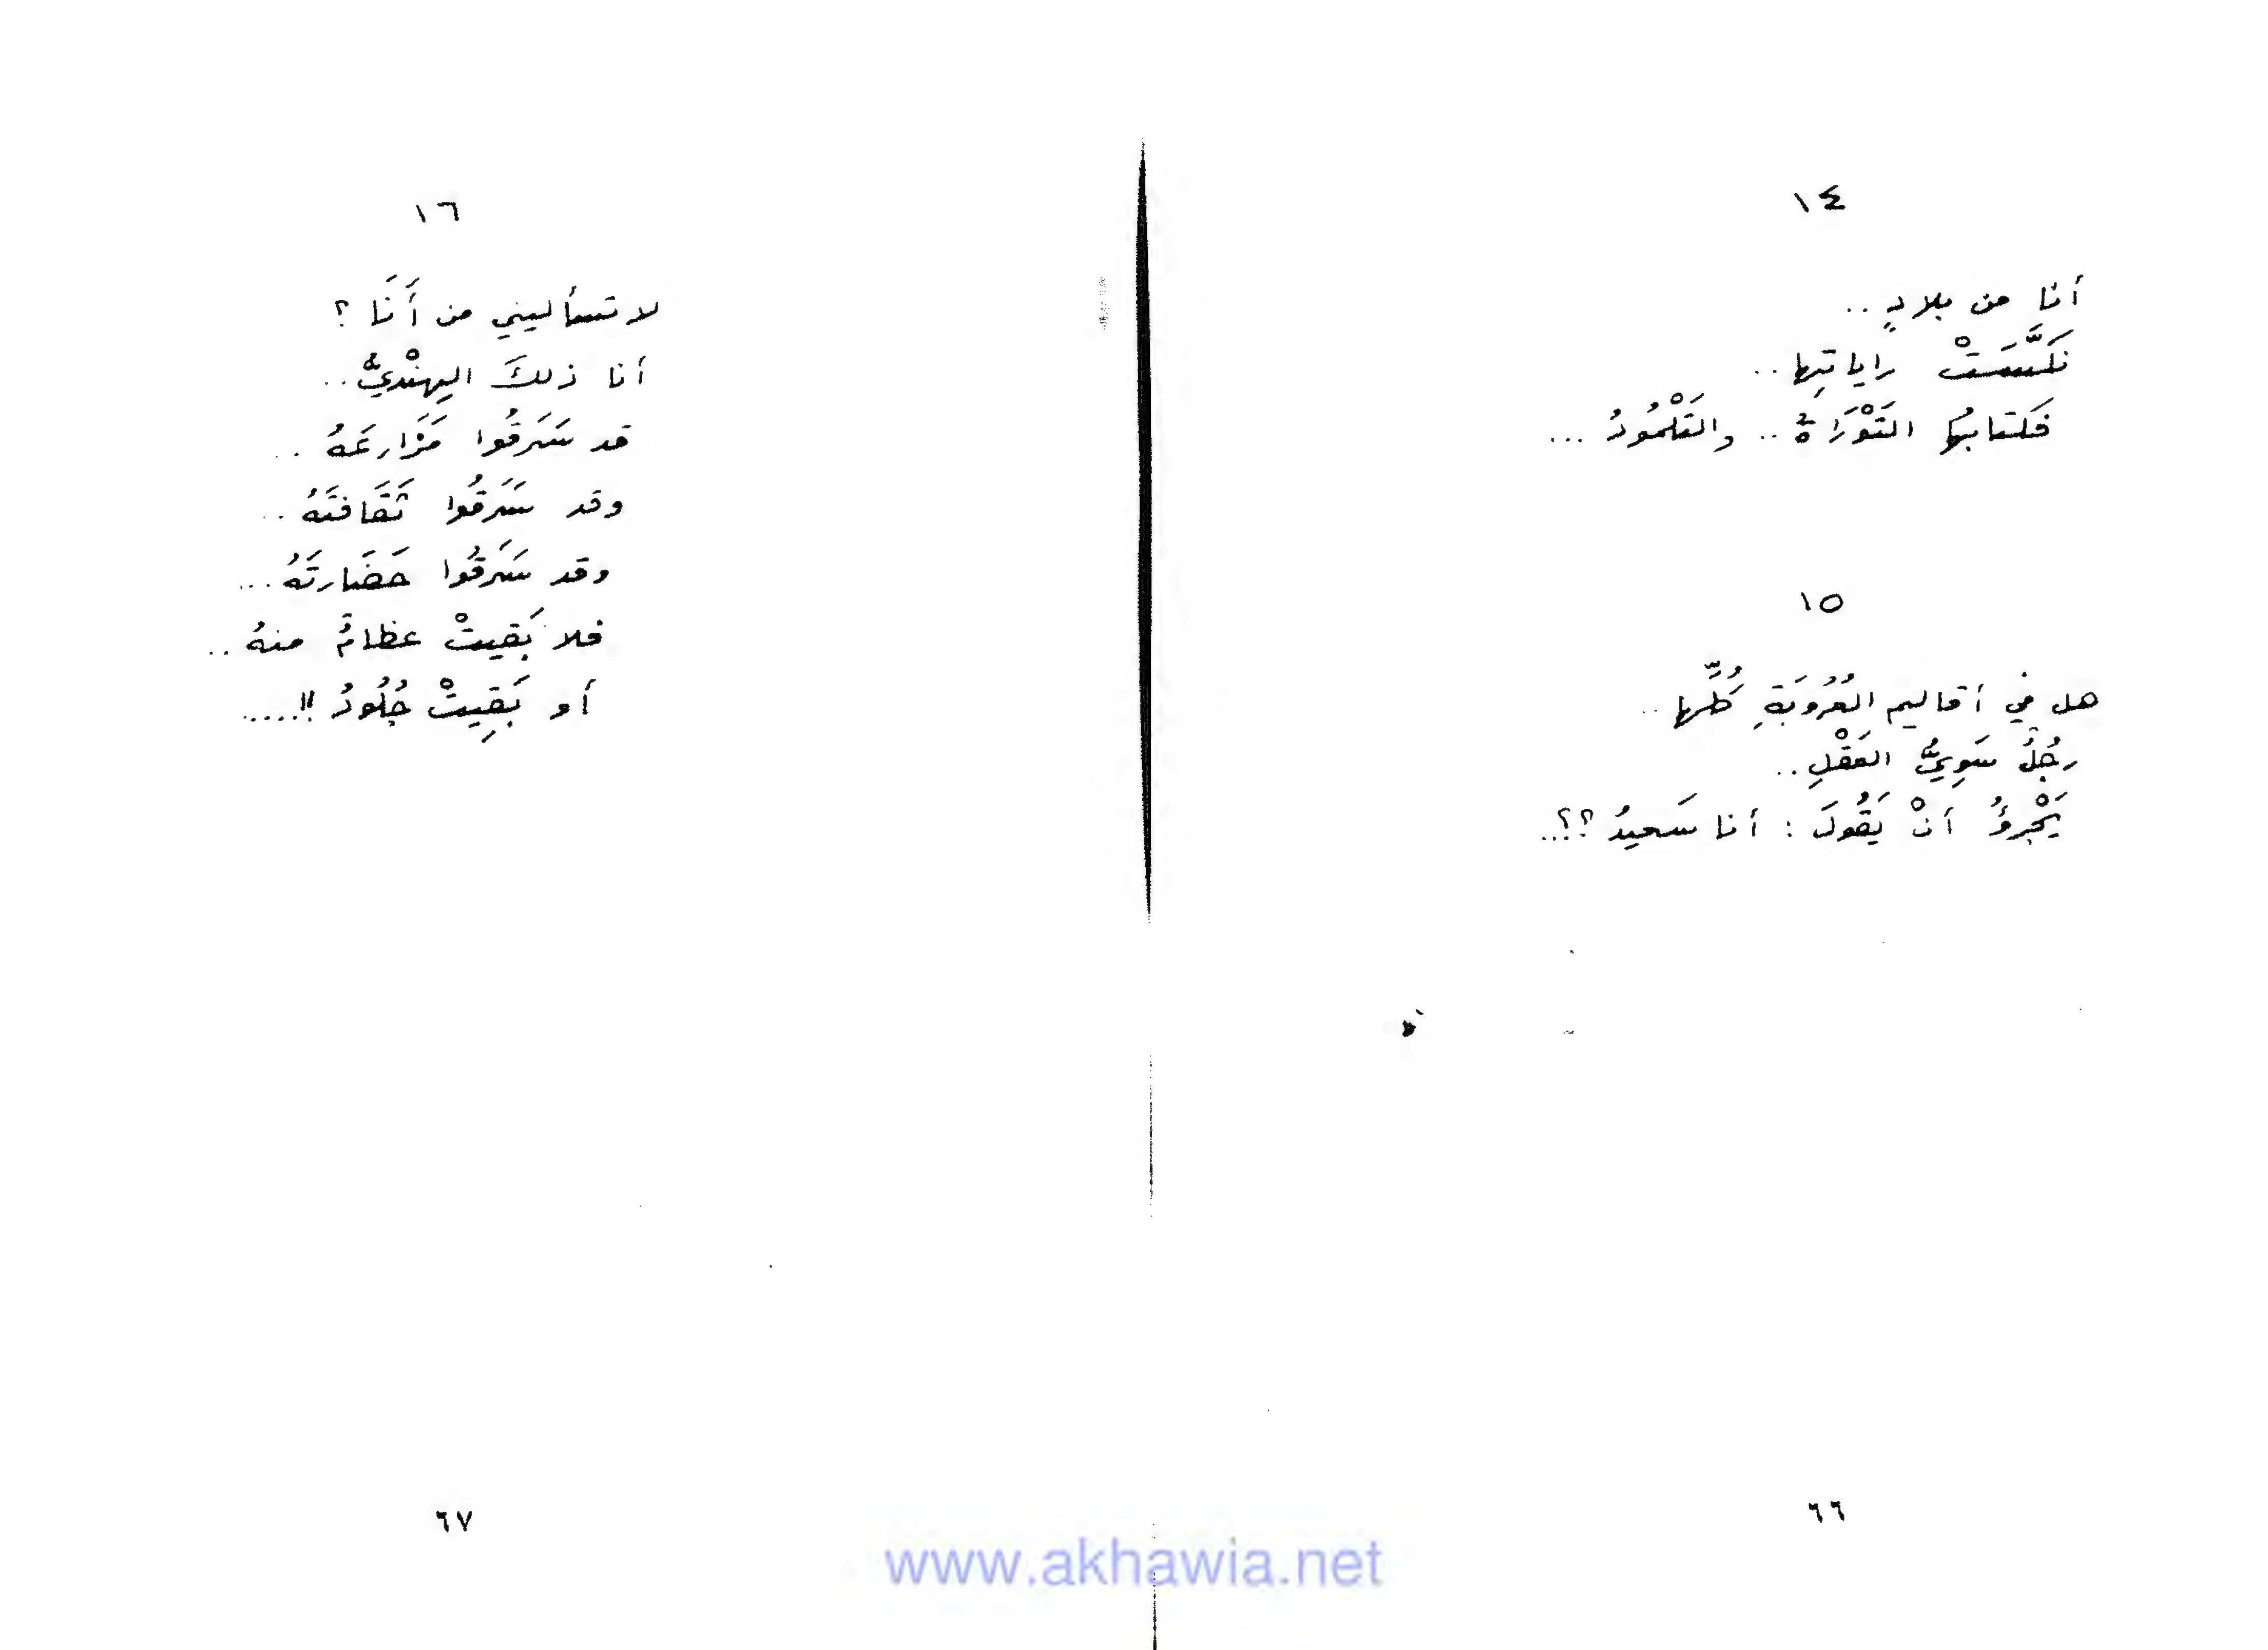 ١٤
أنا من بلادٍ ..
نَكَّسَتْ راياتِها ..
فَكتابُها التَوْرَاةُ .. والتَلْمُودُ ...
١٥
هل في أقاليم العُرُوبَةِ كُلِّها ..
رجُلٌ سَوِيُّ العَقْلِ ..
يَجْرؤُ أنْ يَقُولَ : أنا سَعيدُ ؟؟...
٦٦
١٦
لا تسأليني من أَنَا ؟
أنا ذلكَ الهِنْديُّ ..
قد سَرَقُوا مَزَارعَهُ ..
وقد سَرَقُوا ثَقَافتَهُ ..
وقد سَرَقُوا حَضَارتَهُ ...
فلا بَقِيتْ عظامٌ منهُ ..
أو بَقِيتْ جُلُودُ !!.....
٦٧
www.akhawia.net